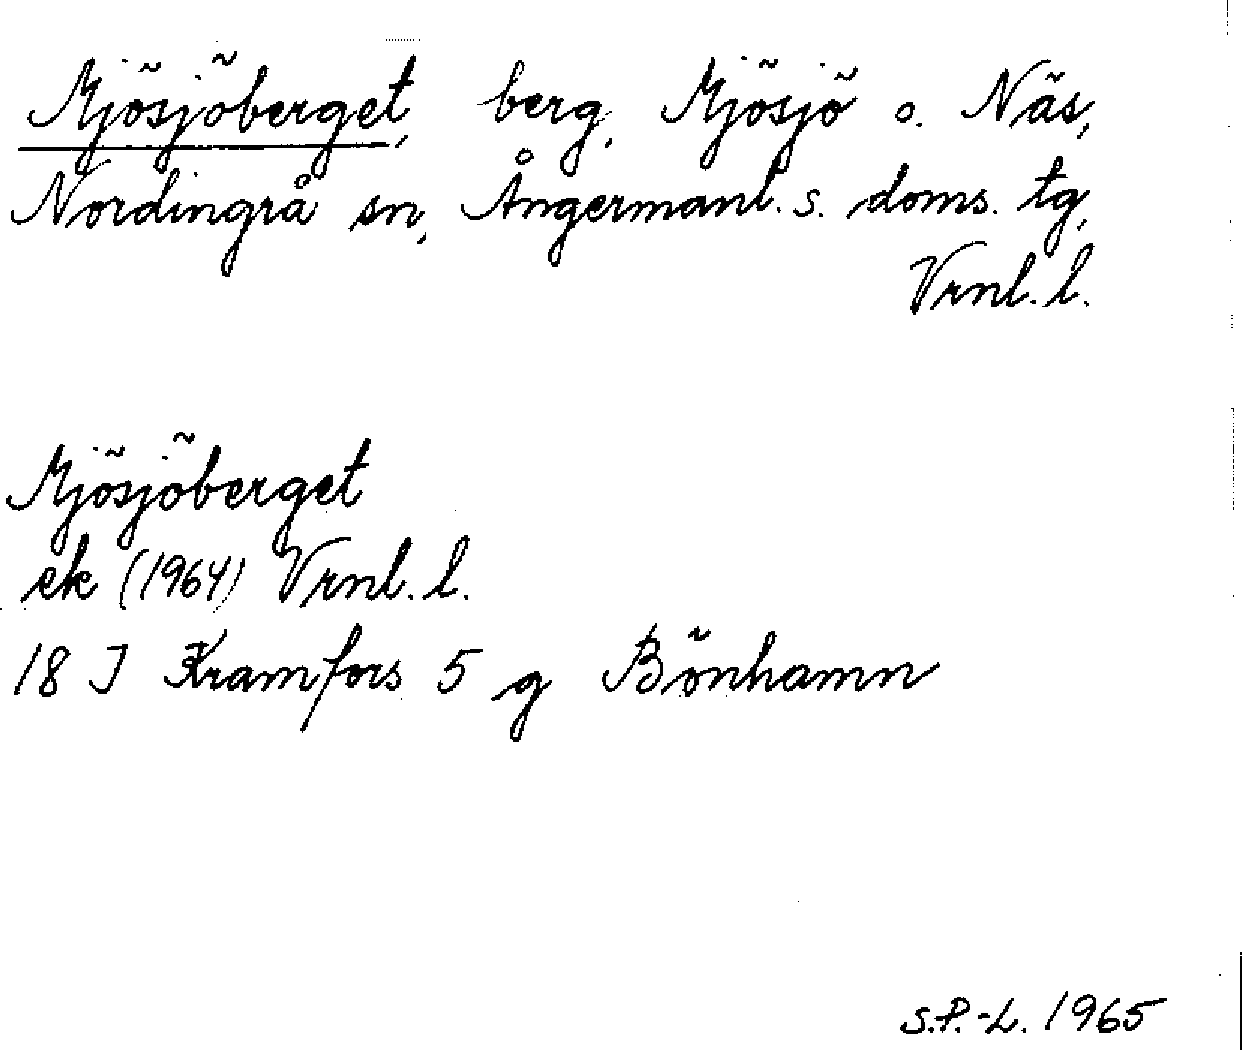 Mjösjöberget, berg, Mjösjö o. Näs,
Nordingrå sn, Ångermanl. s. doms. tg,
Vrnl. l.
Mjösjöberget
ek (1964) Vrnl. l.
18 J Kramfors 5 g Bönhamn
S.P.-L. 1965